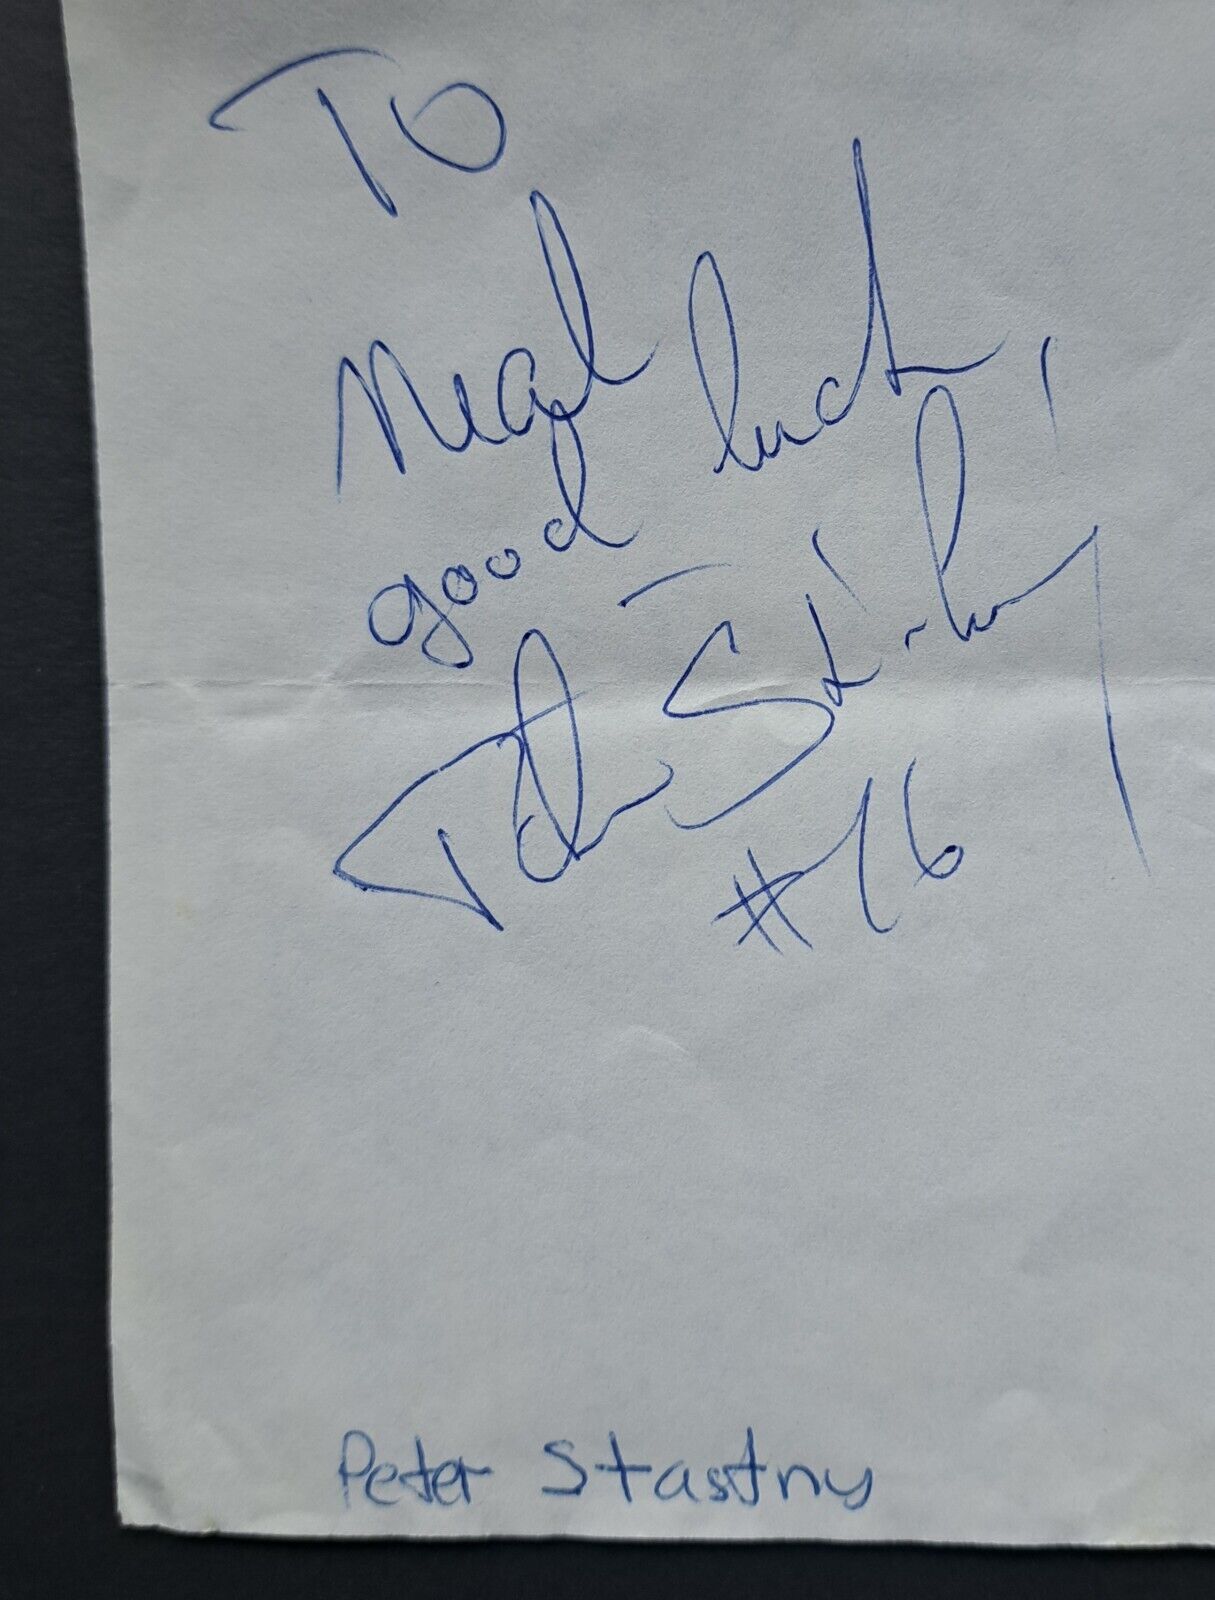 TO
Neal
good luck,
Peter Stastny
#26
Peter Stastny